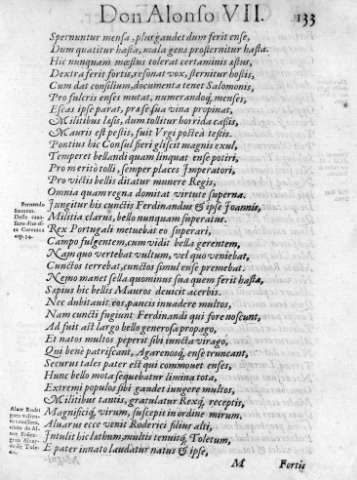 Don Alonso VII. 133
Spernuntur mensa, plus gaudet dum ferit ense,
Dum quatitur hasta, mala gens prosternitur hasta.
Hic nunquam mœstus tolerat certaminis æstus,
Dextra ferit fortis, resonat vox, sternitur hostis,
Cum dat consilium, documenta tenet Salomonis,
Pro fulcris enses mutat, numerandoq; menses,
Escas ipse parat, præse sua vina propinat,
Militibus lasis, dum tollitur horrida cassis,
Mauris est pestis, fuit Vrgi postea testis.
Pontius hic Consul fieri gliscit magnis exul,
Temperet bellandi quam linquat ense potiri,
Pro merito tolli, semper places Imperatori,
Pro victis bellis ditatur munere Regis,
Omnia quam regna domitat virtute superna.
Iungitur his cunctis Ferdinandus & ipse Ioannis,
Militia clarus, bello nunquam superatus.
Rex Portugali metuebat eo superari,
Campo fulgentem, cum vidit bella gerentem,
Nam quo vertebat vultum, vel quo veniebat,
Cunctos terrebat, cunctos simul ense premebat.
Nemo manet sella quominus sua quem ferit hasta,
Sapius hic bellis Mauros deuicit acerbis.
Nec dubitauit eos, paucis inuadere multos,
Nam cuncti fugiunt Ferdinandi qui fore noscunt,
Ad fuit ast largo bello generosa propago,
Et natos multos peperit sibi iuncta virago,
Qui benè patriscant, Agarenosq; ense truncant,
Securus tales pater est qui commouet enses,
Hunc bello mota sequebatur limina tota,
Extremi populos sibi gaudet iungere multos,
Militibus tantis, gratulatur Rexq; receptis,
Magnificiq; virum, suscepit in ordine mirum,
Aluarus ecce venit Roderici filius alti,
Intulit hic lathum, multis tenuitq; Toletum,
E pater innato laudatur natus & ipse,
M Fortis